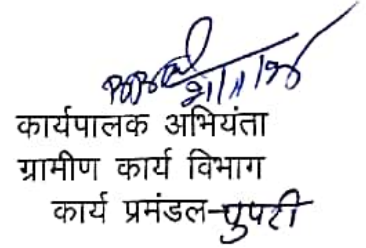 कार्यपालक अभियंता
ग्रामीण कार्य विभाग
कार्य प्रमंडल-पुपरी